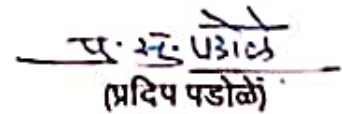 प. सु. पडोळे
(प्रदिप पडोळें)